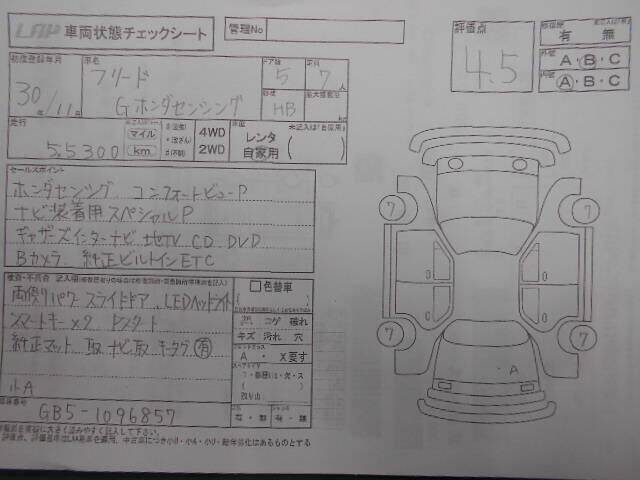 LAA 車両状態チェックシート
管理No
評価点
4.5
有 無
A・B・C
A・B・C
初度登録年月
30年/11月
車名
フリード
G ホンダセンシング
ドア数
5
定員
7人
HB
走行
55300
マイル
km
4WD
2WD
レンタ
自家用
未記入は「自家用」
セールスポイント
ホンダセンシング コンフォートビューP
ナビ装着用スペシャルP
ギャザーズインターナビ 地TV CD DVD
Bカメラ 純正ビルトインETC
両側パワースライドドア LEDヘッドライト
スマートキー×2 Pスタート
純正マット 取 ナビ取 キータグ 有
小A
色替車
コゲ 破れ
キズ 汚れ 穴
A・ X要す
有・無
有・無
GB5-1096857
7
7
7
7
A